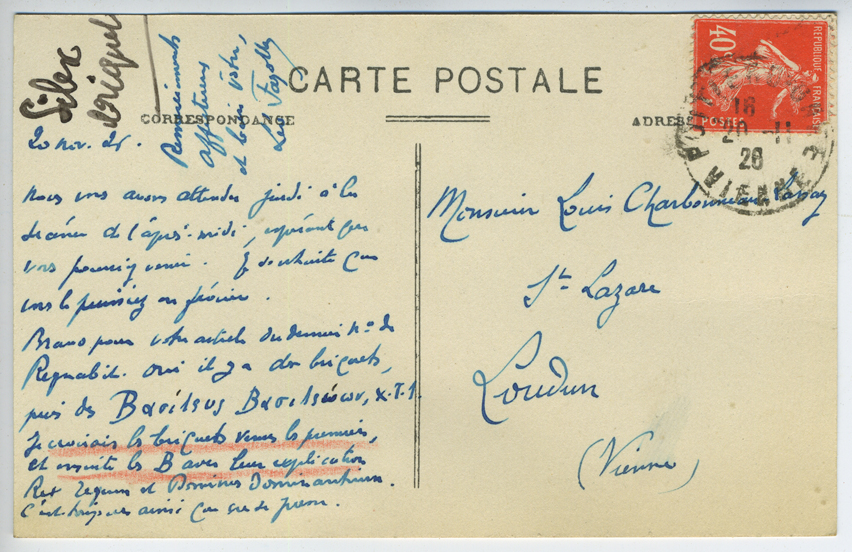 Silex
briquet
Remerciements
affectueux
et bien vôtre,
CARTE POSTALE
CORRESPONDANCE
ADRESSE
REPUBLIQUE FRANÇAISE
40c
POSTES
18
20 -11
26
VIENNE
20 nov. 26.
Nous vous avons attendu jeudi à la
séance de l'après-midi, espérant que
vous pourriez venir. Je souhaite que
vous le puissiez en février.
Bravo pour votre article du dernier No de
Regnabit. Oui il y a des briquets,
puis des Βασιλευς Βασιλεων, Χ.Τ.λ.
Je croirais les briquets venus les premiers,
et ensuite les B avec leur explication
Rex Regum et Dominus Dominantium.
C'est toujours ainsi que se
Monsieur Louis Charbonneau-Lassay
St Lazare
Loudun
(Vienne)